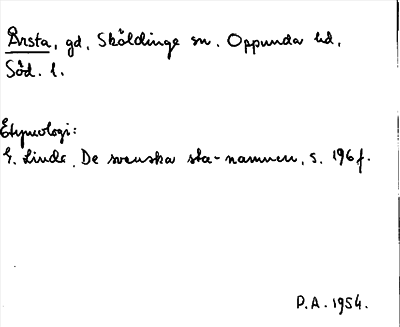 Årsta, gd, Sköldinge sn. Oppunda hd,
Söd. l.
Etymologi:
E. Linde, De svenska sta-namnen, s. 196 f.
P.A. 1954.